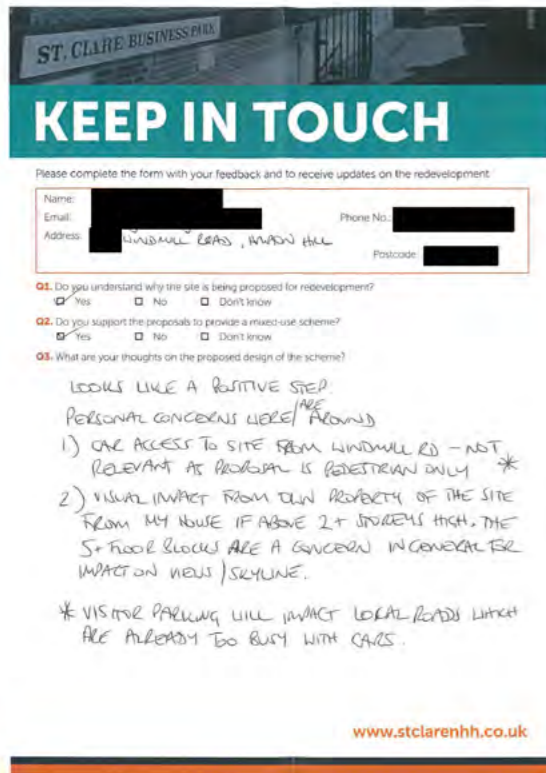 ST. CLARE BUSINESS PARK
KEEP IN TOUCH
Please complete the form with your feedback and to receive updates on the redevelopment
Name:
Email:
Phone No.:
Address: WINDMILL ROAD, HAMPTON HILL
Postcode:
Q1. Do you understand why the site is being proposed for redevelopment?
Yes No Don't know
Q2. Do you support the proposals to provide a mixed-use scheme?
Yes No Don't know
Q3. What are your thoughts on the proposed design of the scheme?
LOOKS LIKE A POSITIVE STEP.
PERSONAL CONCERNS WERE/ARE AROUND
1) CAR ACCESS TO SITE FROM WINDMILL RD - NOT
RELEVANT AS PROPOSAL IS PEDESTRIAN ONLY *
2) VISUAL IMPACT FROM OWN PROPERTY OF THE SITE
FROM MY HOUSE IF ABOVE 2+ STOREYS HIGH. THE
5+ FLOOR BLOCKS ARE A CONCERN IN GENERAL FOR
IMPACT ON VIEWS/SKYLINE.
* VISITOR PARKING WILL IMPACT LOCAL ROADS WHICH
ARE ALREADY TOO BUSY WITH CARS.
www.stclarenhh.co.uk